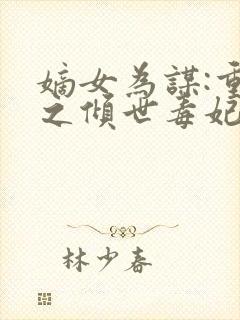 嫡女為謀:重
之傾世毒妃
林少春